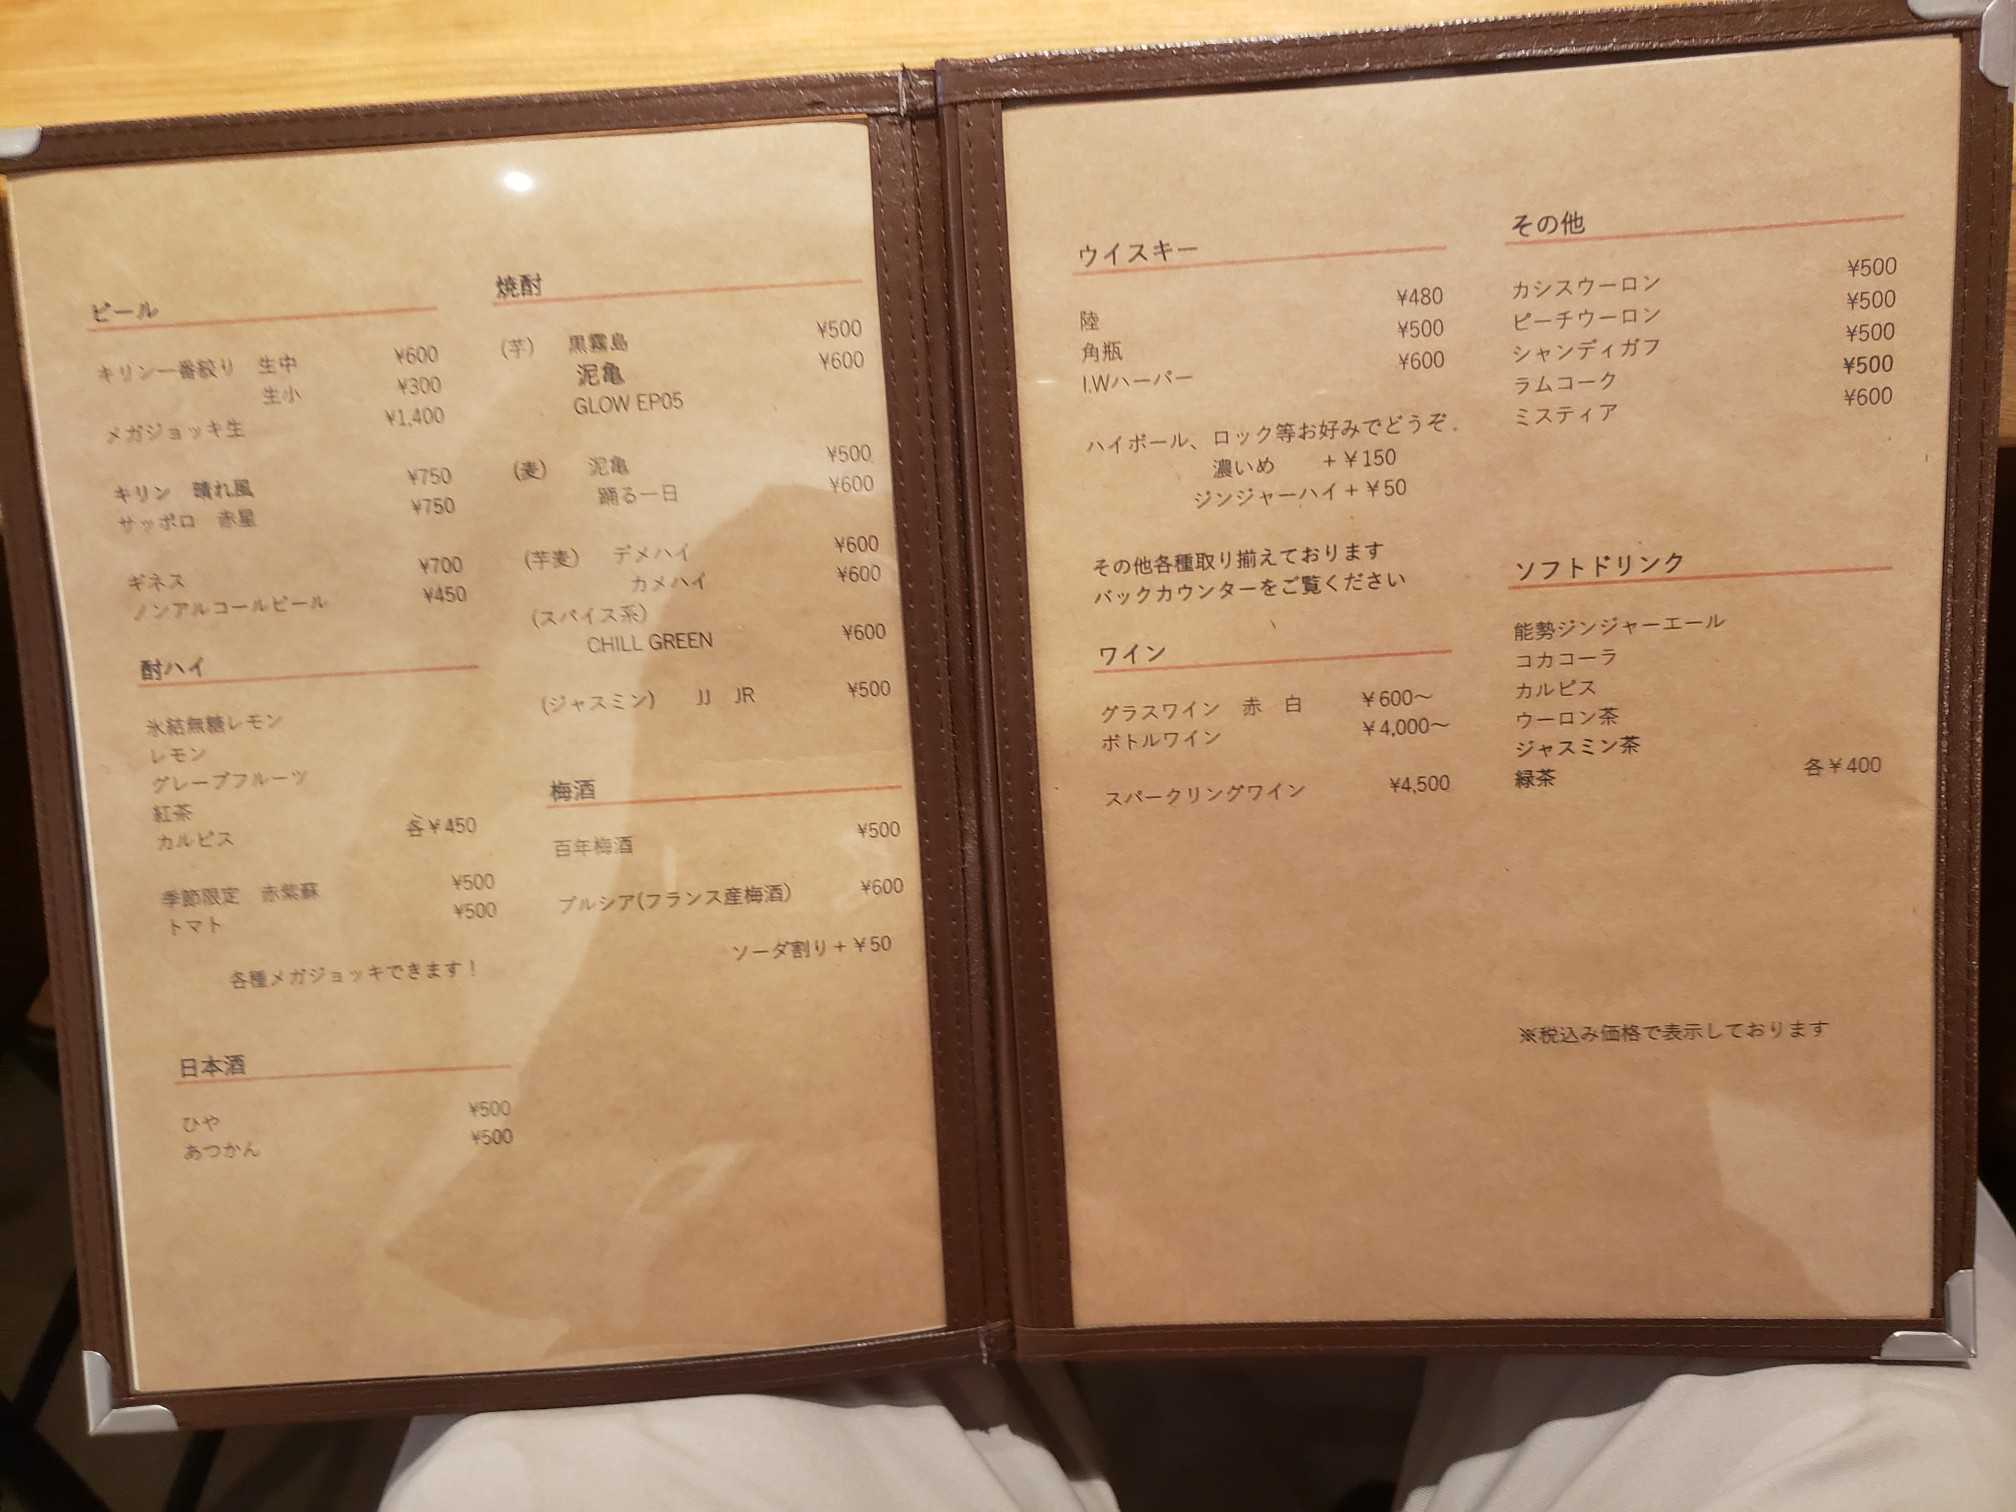 ビール
キリン一番絞り 生中 ¥600
生小 ¥300
メガジョッキ生 ¥1,400
キリン 晴れ風 ¥750
サッポロ 赤星 ¥750
ギネス ¥700
ノンアルコールビール ¥450
酎ハイ
氷結無糖レモン
レモン
グレープフルーツ
紅茶
カルピス 各¥450
季節限定 赤紫蘇 ¥500
トマト ¥500
各種メガジョッキできます！
日本酒
ひや ¥500
あつかん ¥500
焼酎
(芋) 黒霧島 ¥500
泥亀 ¥600
GLOW EP05
(麦) 泥亀 ¥500
踊る一日 ¥600
(芋麦) デメハイ ¥600
カメハイ ¥600
(スパイス系)
CHILL GREEN ¥600
(ジャスミン) JJ JR ¥500
梅酒
百年梅酒 ¥500
プルシア(フランス産梅酒) ¥600
ソーダ割り+¥50
ウイスキー
陸 ¥480
角瓶 ¥500
I.Wハーパー ¥600
ハイボール、ロック等お好みでどうぞ.
濃いめ +¥150
ジンジャーハイ+¥50
その他各種取り揃えております
バックカウンターをご覧ください
ワイン
グラスワイン 赤 白 ¥600〜
ボトルワイン ¥4,000〜
スパークリングワイン ¥4,500
その他
カシスウーロン ¥500
ピーチウーロン ¥500
シャンディガフ ¥500
ラムコーク ¥500
ミスティア ¥600
ソフトドリンク
能勢ジンジャーエール
コカコーラ
カルピス
ウーロン茶
ジャスミン茶
緑茶 各¥400
※税込み価格で表示しております